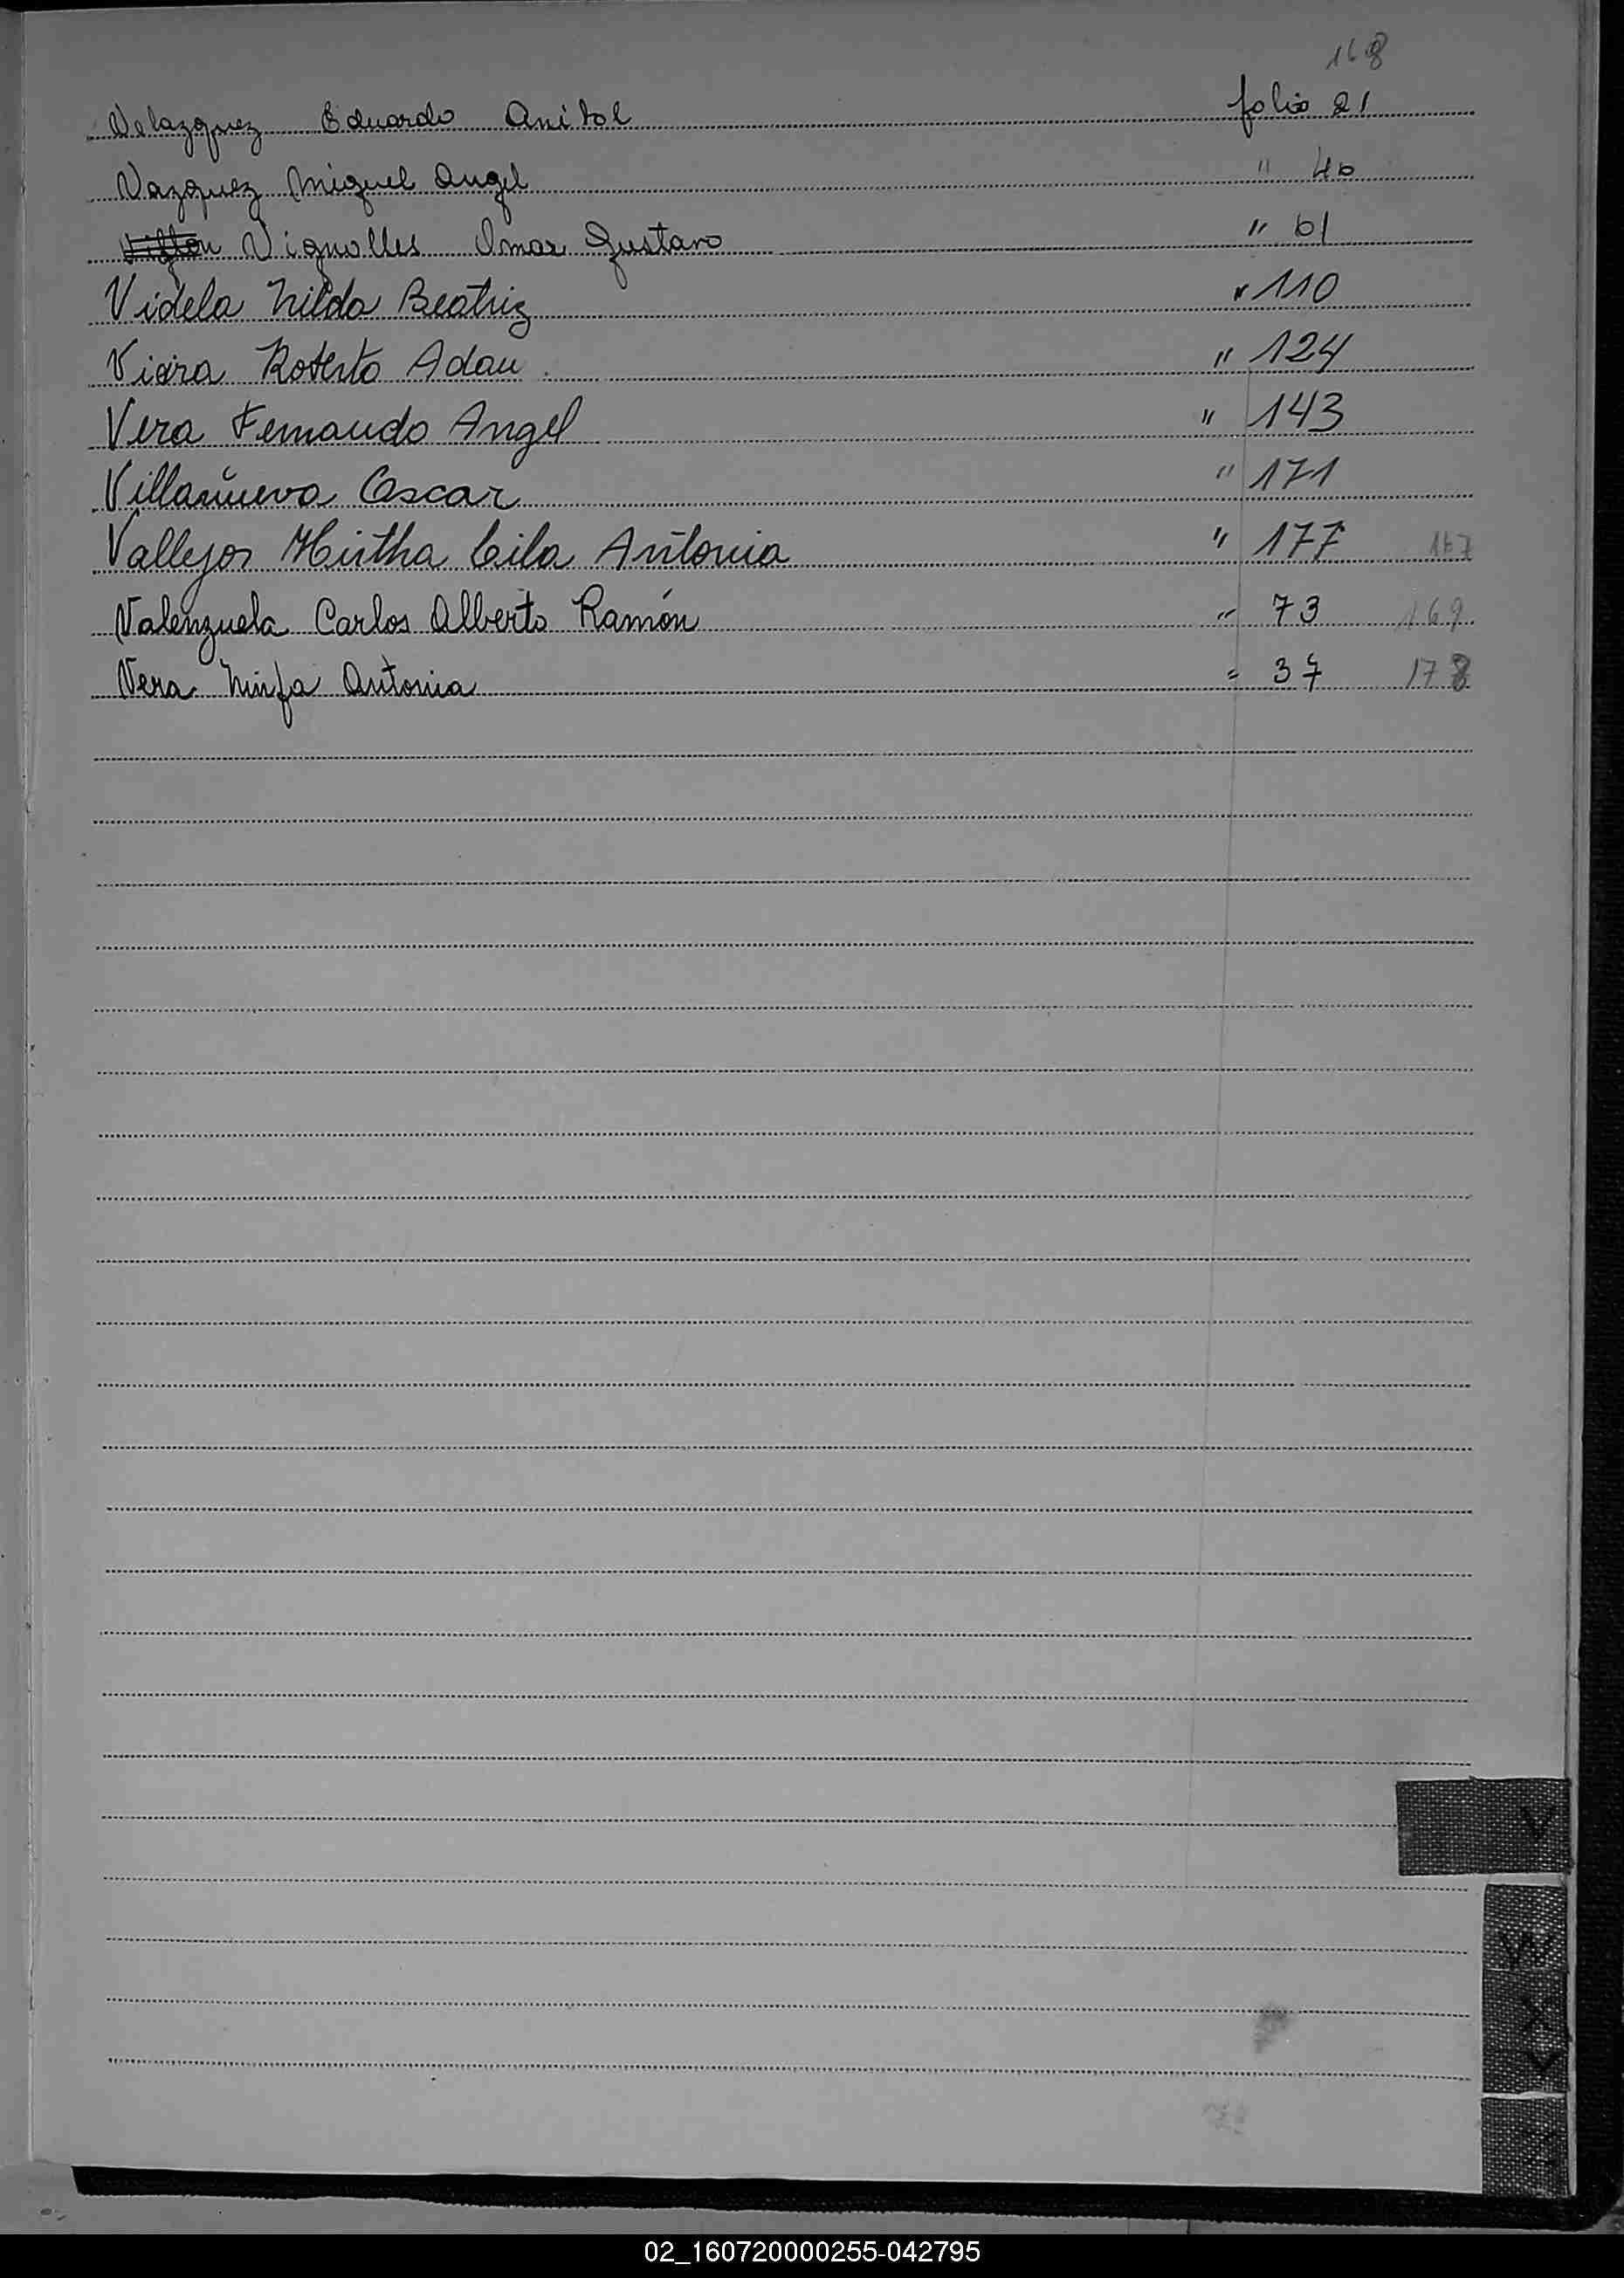 168
Velazquez Eduardo Anibol folio 21
Vazquez Miguel Angel " 46
Vignolles Omar Gustavo " 61
Videla Nilda Beatriz " 110
Vieira Roberto Adan " 124
Vera Fernando Angel " 143
Villanueva Oscar " 171
Vallejos Mirtha Cila Antonia " 177 167
Valenzuela Carlos Alberto Ramón " 73 169
Vera Ninfa Antonia " 37 178
V
W
X
Y
02_160720000255-042795